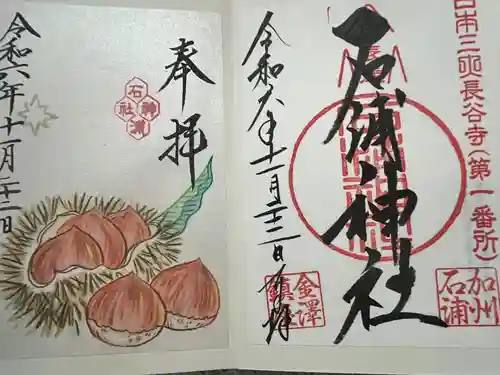 日本三大長谷寺(第一番所)
石浦神社
加州
石浦
令和六年十一月二十二日
金澤
鎮
奉拝
石浦
神社
令和六年十一月二十二日